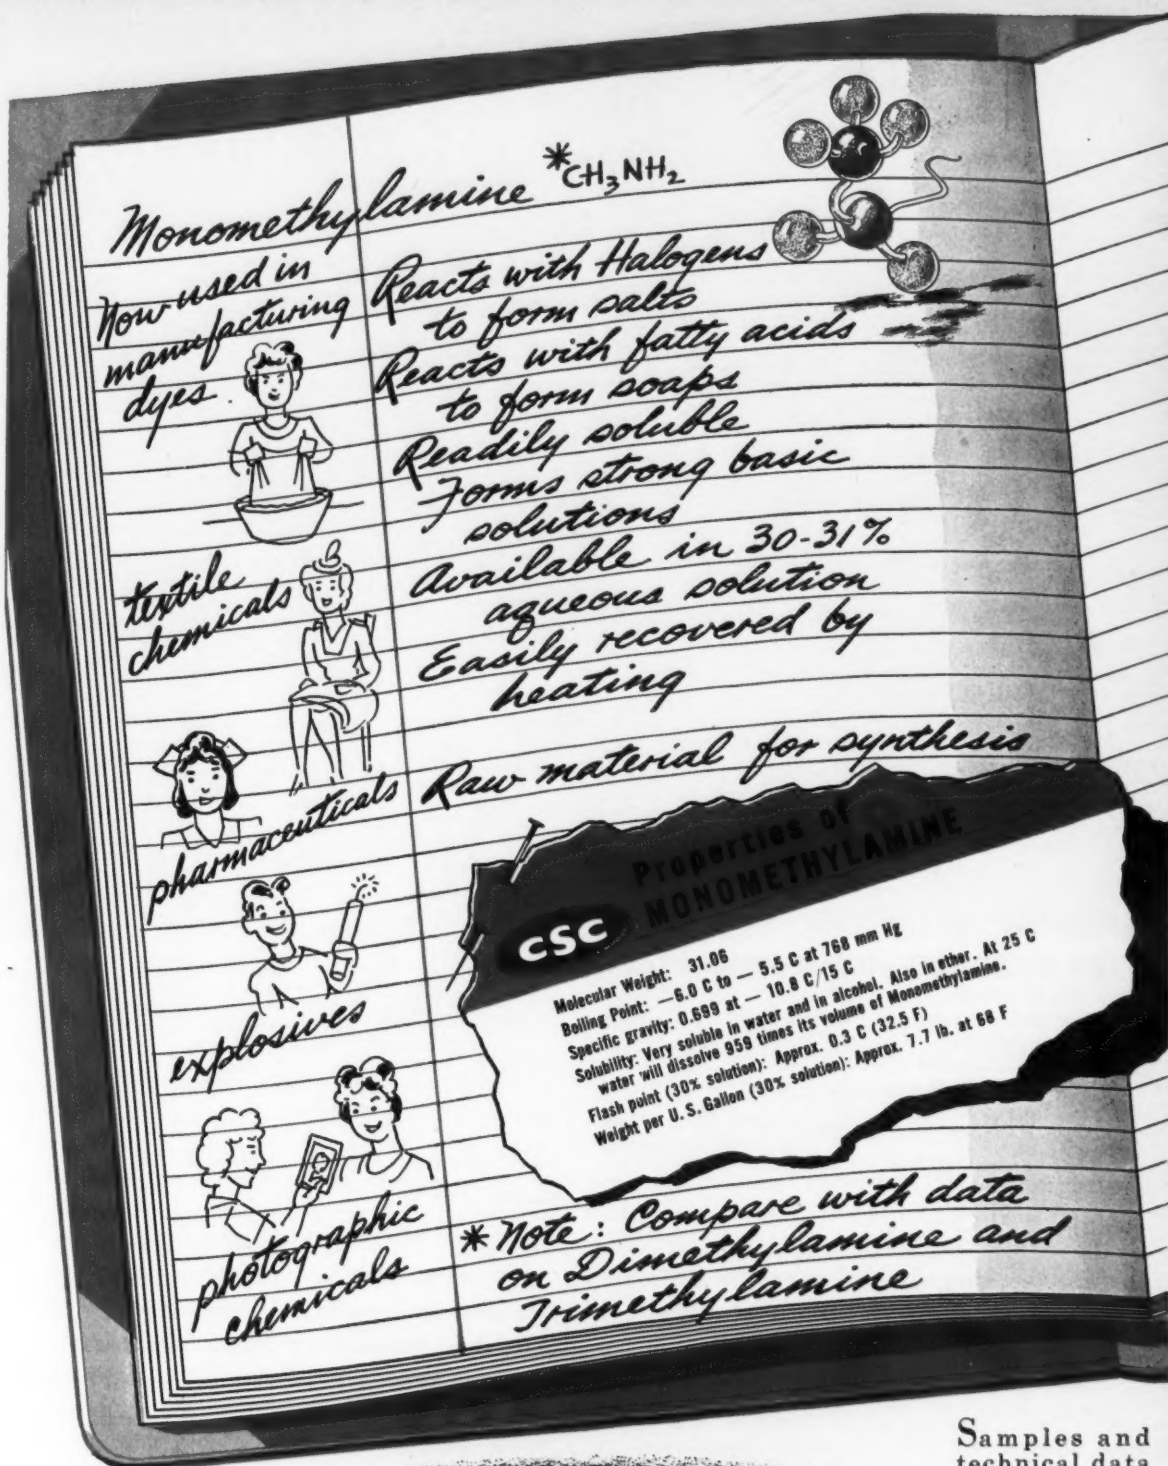 Monomethylamine *CH3NH2
Now used in
manufacturing
dyes
textile
chemicals
pharmaceuticals
explosives
photographic
chemicals
Reacts with Halogens
to form salts
Reacts with fatty acids
to form soaps
Readily soluble
Forms strong basic
solutions
Available in 30-31%
aqueous solution
Easily recovered by
heating
Raw material for synthesis
Properties of
MONOMETHYLAMINE
CSC
Molecular Weight: 31.06
Boiling Point: —6.0 C to — 5.5 C at 768 mm Hg
Specific gravity: 0.699 at — 10.8 C/15 C
Solubility: Very soluble in water and in alcohol. Also in ether. At 25 C
water will dissolve 959 times its volume of Monomethylamine.
Flash point (30% solution): Approx. 0.3 C (32.5 F)
Weight per U. S. Gallon (30% solution): Approx. 7.7 lb. at 68 F
* Note: Compare with data
on Dimethylamine and
Trimethylamine
Samples and
technical data